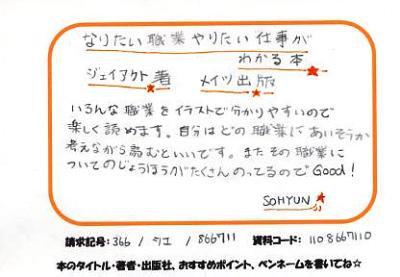 なりたい職業やりたい仕事が
わかる本
ジェイアクト著 メイツ出版
いろんな職業をイラストで分かりやすいので
楽しく読めます。自分はどの職業にあいそうか
考えながら読むといいです。またその職業に
ついてのじょうほうがたくさんのってるのでGood!
SOHYUN
請求記号: 366 / クエ / 866711 資料コード: 1108667110
本のタイトル・著者・出版社、おすすめポイント、ペンネームを書いてね☆